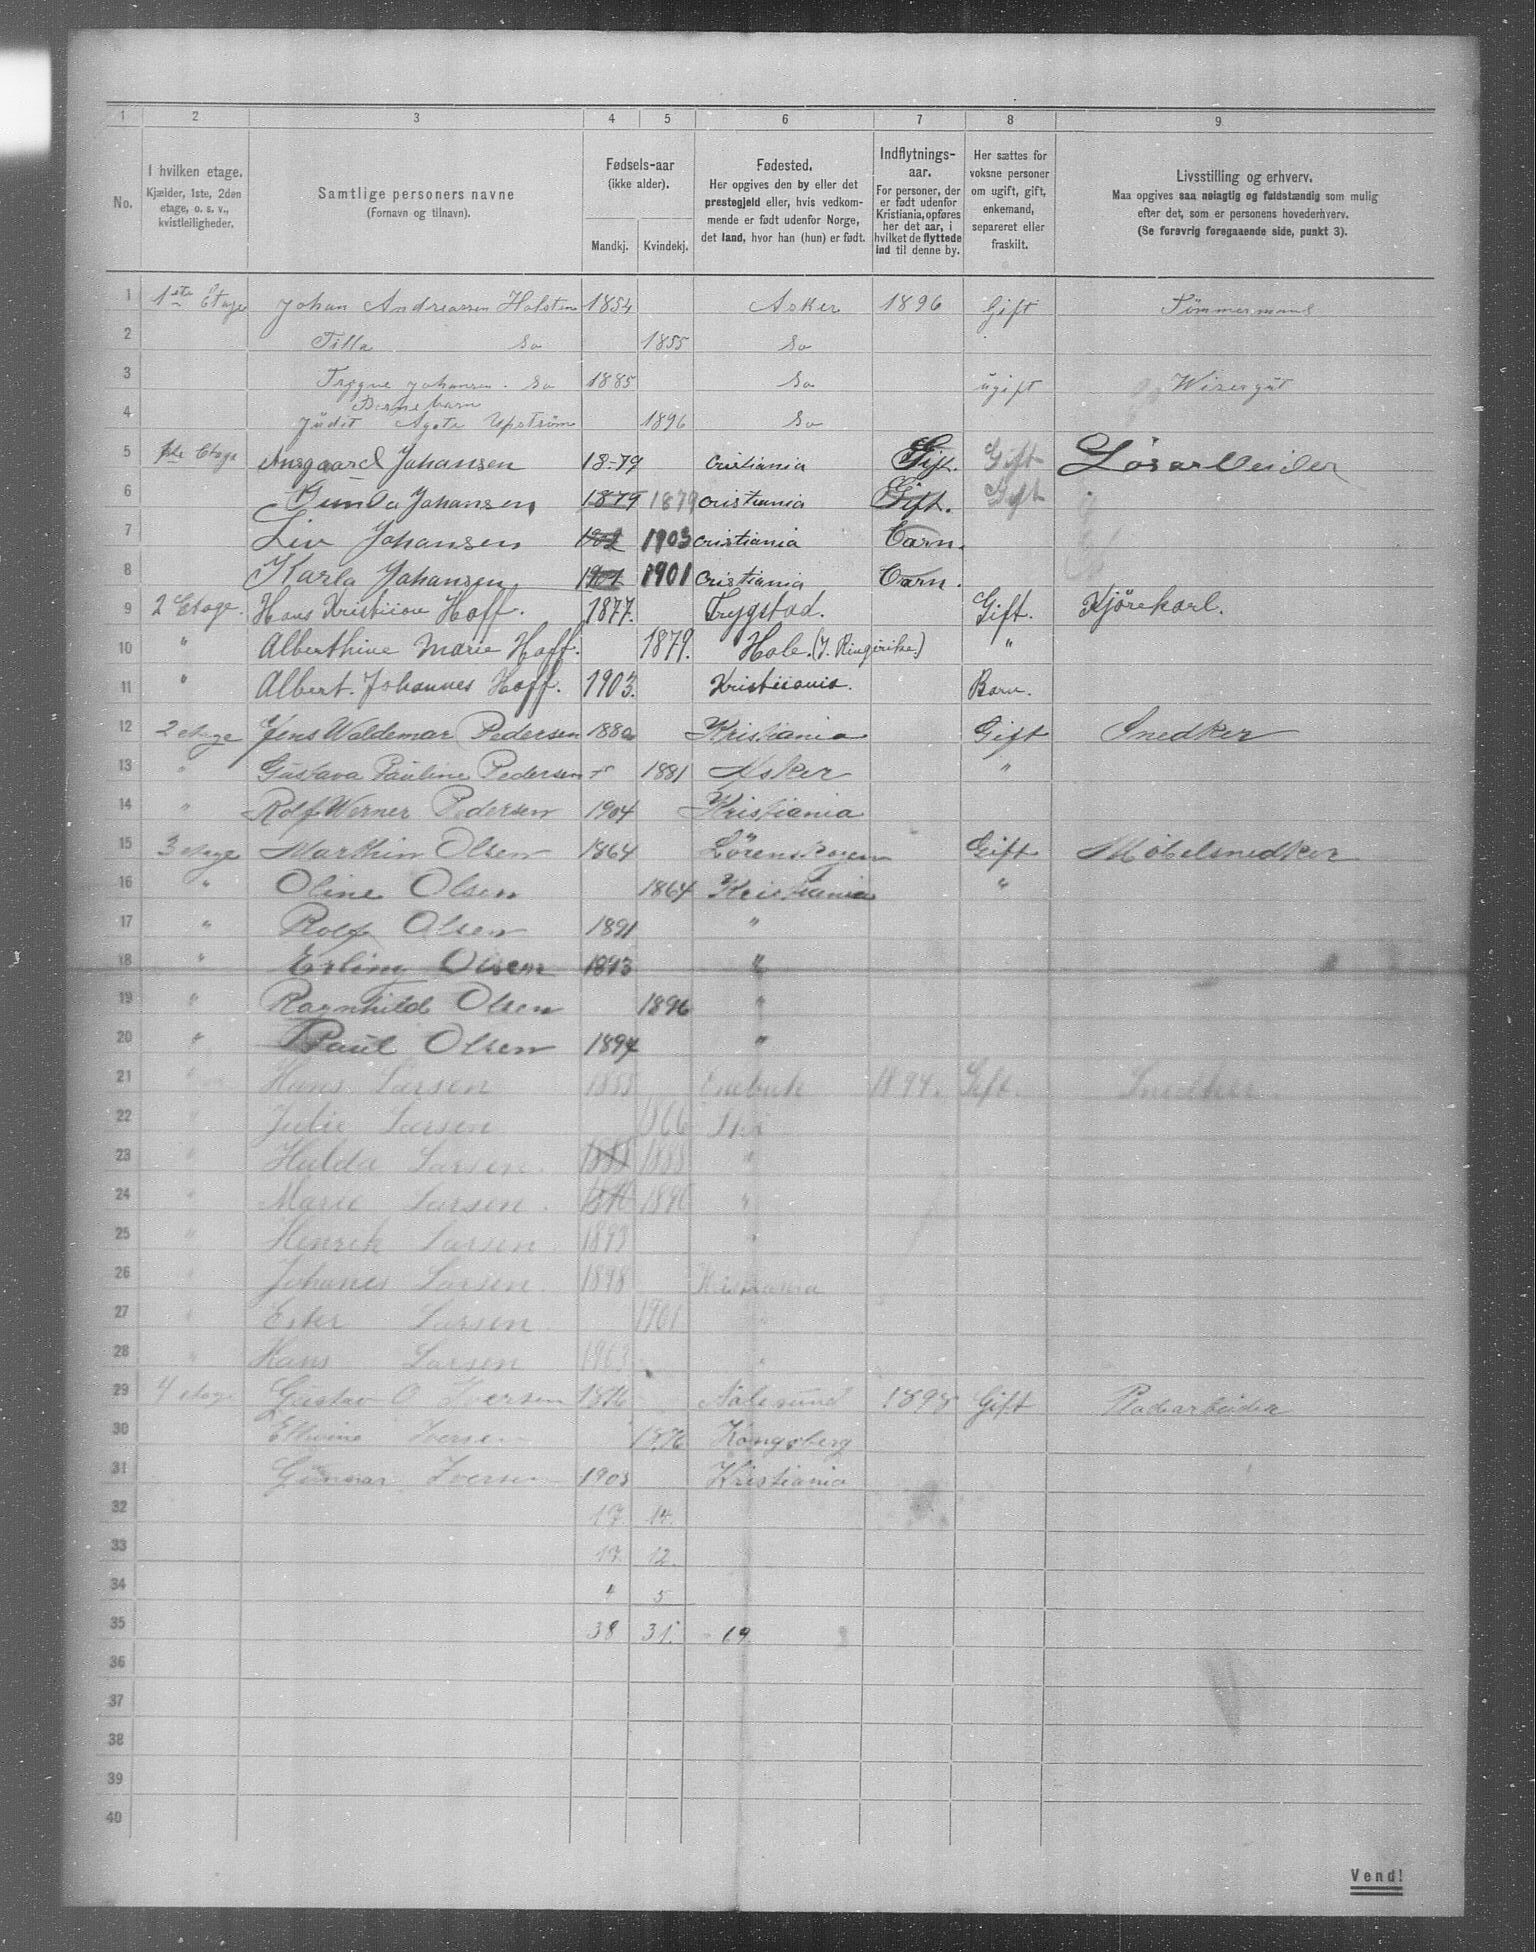 1 2 3 4 5 6 7 8 9
No.
I hvilken etage.
Kjælder, 1ste, 2den
etage, o. s. v.,
kvistleiligheder.
Samtlige personers navne
(Fornavn og tilnavn).
Fødsels-aar
(ikke alder).
Mandkj. Kvindekj.
Fødested.
Her opgives den by eller det
prestegjeld eller, hvis vedkom-
mende er født udenfor Norge,
det land, hvor han (hun) er født.
Indflytnings-
aar.
For personer, der
er født udenfor
Kristiania, opføres
her det aar, i
hvilket de flyttede
ind til denne by.
Her sættes for
voksne personer
om ugift, gift,
enkemand,
separeret eller
fraskilt.
Livsstilling og erhverv.
Maa opgives saa nøiagtig og fuldstændig som mulig
efter det, som er personens hovederhverv.
(Se forøvrig foregaaende side, punkt 3).
1 1ste Etage Johan Andreassen Holsten 1854 Asker 1896 Gift Tømmermand
2 Tilla do 1855 do
3 Trygve Johansen do 1885 do ugift Wisergut
Barnebarn
4 Judit Agate Upstrøm 1896 do
5 1ste Etage Ansgaard Johansen 1879 Cristiania Gift. Gift Løsarbeider
6 Gunda Johansen 1879 1879 Cristiania Gift. Gift "
7 Liv Johansen 1903 Cristiania Barn.
8 Karla Johansen 1901 1901 Cristiania Barn.
9 2 Etage. Hans Kristiian Hoff. 1877. Trygstad. Gift. Kjørekarl.
10 " Alberthine Marie Hoff. 1879. Hole. (J. Ringerike.) "
11 " Albert. Johannes Hoff. 1903. Kristiiania. Barn.
12 2 etage Jens Waldemar Pedersen 1880 Kristiania Gift Snedker
13 " Gustava Pauline Pedersen 1881 Asker "
14 " Rolf Werner Pedersen 1904 Kristiania
15 3 etage Marthin Olsen 1864 Lørenskogen Gift Møbelsnedker
16 " Oline Olsen 1864 Kristiania "
17 " Rolf Olsen 1891 "
18 " Erling Olsen 1893 "
19 " Ragnhild Olsen 1896 "
20 " Paul Olsen 1894 "
21 " Hans Larsen Enebak 1894. Gift. Snedker
22 " Julie Larsen 1866 Ski
23 " Hulda Larsen. 1888 1888 "
24 " Marie Larsen. 1890 1890 "
25 " Henrik Larsen. 1893 "
26 " Johanes Larsen. 1898 Kristiania
27 " Ester Larsen. 1901 "
28 " Hans Larsen 1903 "
29 4 etage Gustav O Iversen 1876 Aalesund 1898 Gift Pladsarbeider
30 Iversen 1876 Kongsberg
31 Gunnar Iversen 1903 Kristiania
32 17 14
33 17 12.
34 4 5
35 38 31. 69
36
37
38
39
40
Vend!